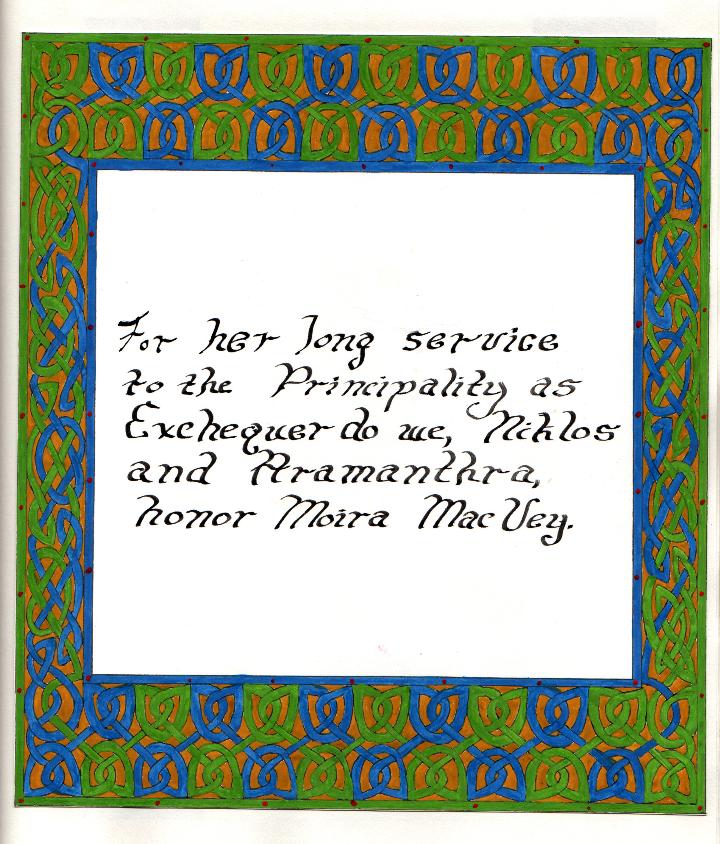 For her long service
to the Principality as
Exchequer do we, Niklos
and Aramanthra,
honor Moira MacVey.